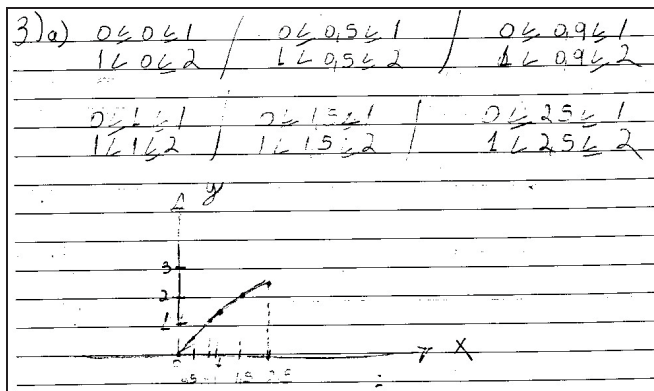 3)a) 0≤0≤1 / 0≤0,5≤1 / 0≤0,9≤1
1<0≤2 / 1<0,5≤2 / 1<0,9≤2
0≤1≤1 / 0≤1,5≤1 / 0≤2,5≤1
1<1≤2 / 1<1,5≤2 / 1<2,5≤2
y
3
2
1
x